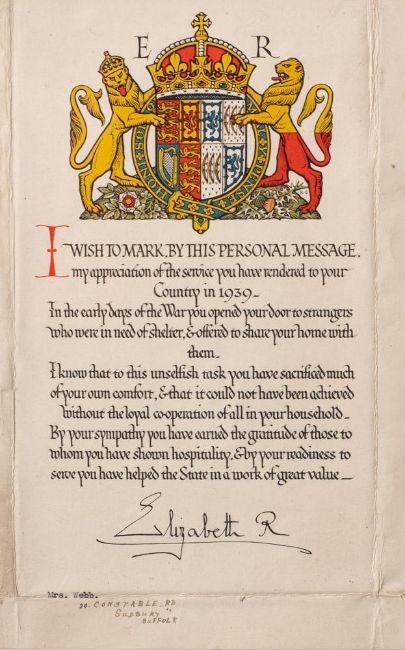 E R
HONI SOIT QUI MAL Y PENSE
I WISH TO MARK, BY THIS PERSONAL MESSAGE,
my appreciation of the service you have rendered to your
Country in 1939_
In the early days of the War you opened your door to strangers
who were in need of shelter, & offered to share your home with
them_
I know that to this unselfish task you have sacrificed much
of your own comfort, & that it could not have been achieved
without the loyal co-operation of all in your household_
By your sympathy you have earned the gratitude of those to
whom you have shown hospitality, & by your readiness to
serve you have helped the State in a work of great value_
Elizabeth R
Mrs. Webb.
20. CONSTABLE. RD
SUDBURY
SUFFOLK